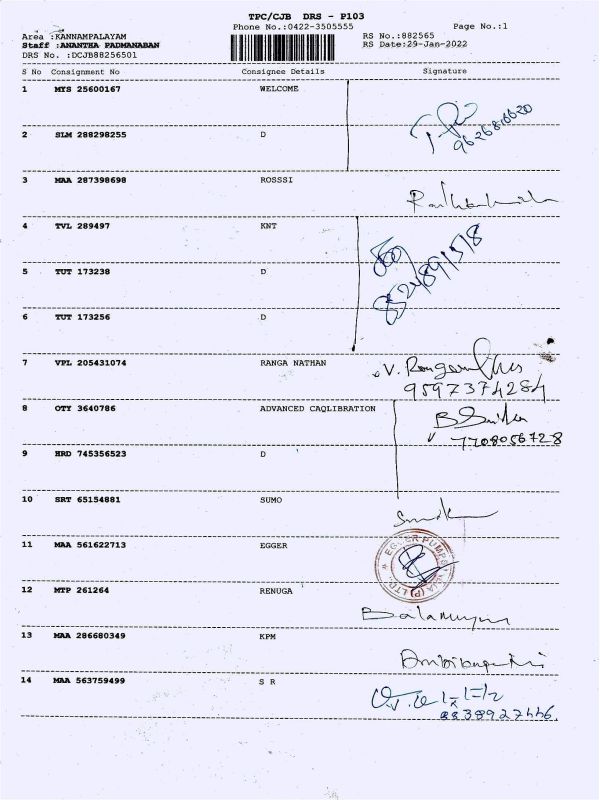 TPC/CJB DRS - P103
Phone No.:0422-3505555 Page No.:1
Area :KANNAMPALAYAM RS No.:882565
Staff :ANANTHA PADMANABAN RS Date:29-Jan-2022
DRS No. :DCJB88256501
S No Consignment No Consignee Details Signature
1 MYS 25600167 WELCOME
2 SLM 288298255 D
3 MAA 287398698 ROSSSI
4 TVL 289497 KNT
5 TUT 173238 D
6 TUT 173256 D
7 VPL 205431074 RANGA NATHAN
9597374284
8 OTY 3640786 ADVANCED CAQLIBRATION
7708056728
9 HRD 745356523 D
10 SRT 65154881 SUMO
11 MAA 561622713 EGGER
EGGER PUMPS (P) LTD.
12 MTP 261264 RENUGA
13 MAA 286680349 KPM
14 MAA 563759499 S R